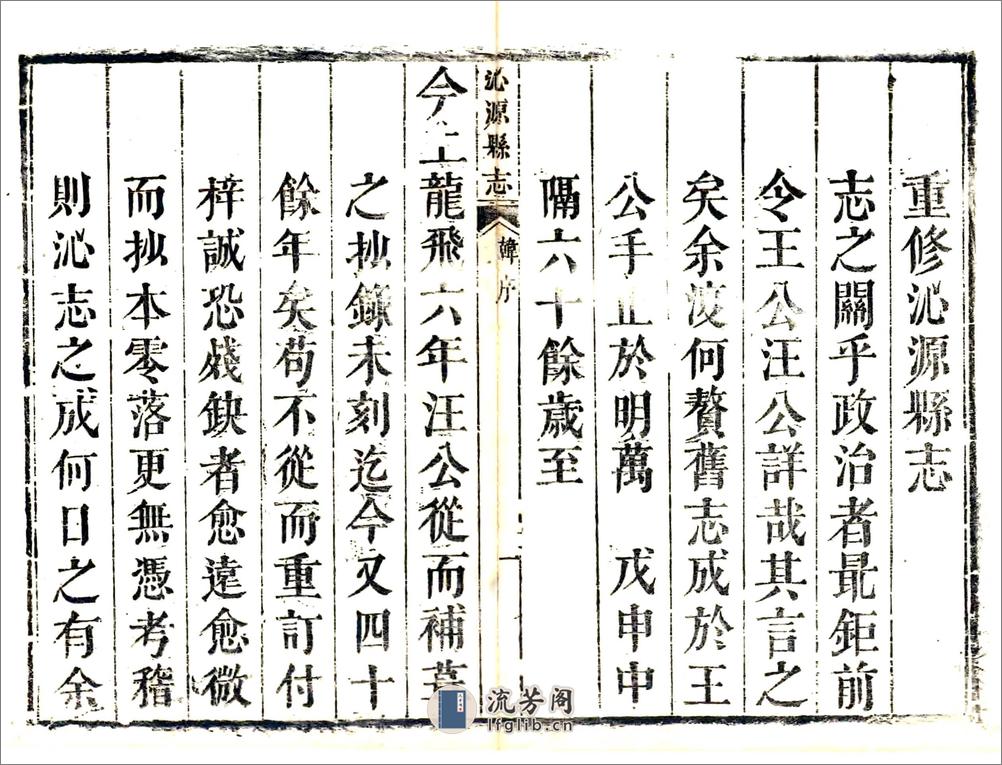 重修沁源縣志
志之關乎政治者最鉅前
令王公汪公詳哉其言之
矣余復何贅舊志成於王
公手止於明萬 戊申中
隔六十餘歲至
沁源縣志 韓序
今上龍飛六年汪公從而補葺
之抄錄未刻迄今又四十
餘年矣苟不從而重訂付
梓誠恐殘缺者愈遠愈微
而抄本零落更無憑考稽
則沁志之成何日之有余
流芳阁
lfglib.cn